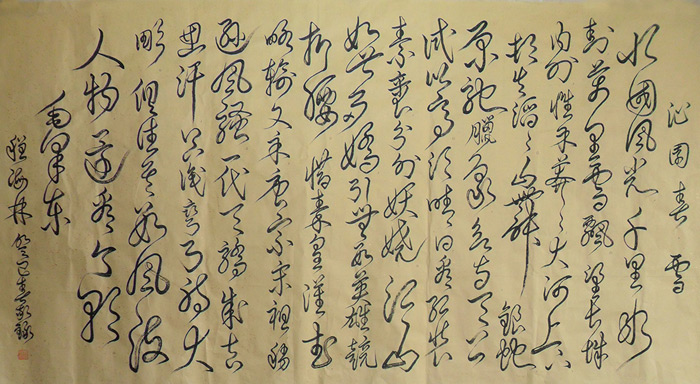 沁园春 雪
北國风光千里冰
封萬里雪飄望长城
内外惟余莽々大河上下
顿失滔々山舞银蛇
原驰臘象欲与天公
试比高须晴日看红装
素裹分外妖娆江山
如此多嬌引無数英雄競
折腰惜秦皇漢武
略输文采唐宗宋祖稍
逊風騷一代天骄成吉
思汗只识弯弓射大
雕俱往矣数風流
人物还看今朝
毛泽东
癸巳春